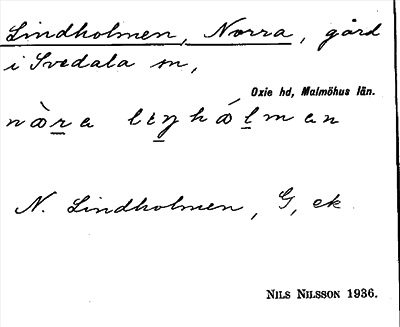 Lindholmen, Norra, gård
i Svedala sn,
Oxie hd, Malmöhus län.
nær̠a lɛŋhǽl̠man
N. Lindholmen, G, ek
NILS NILSSON 1936.